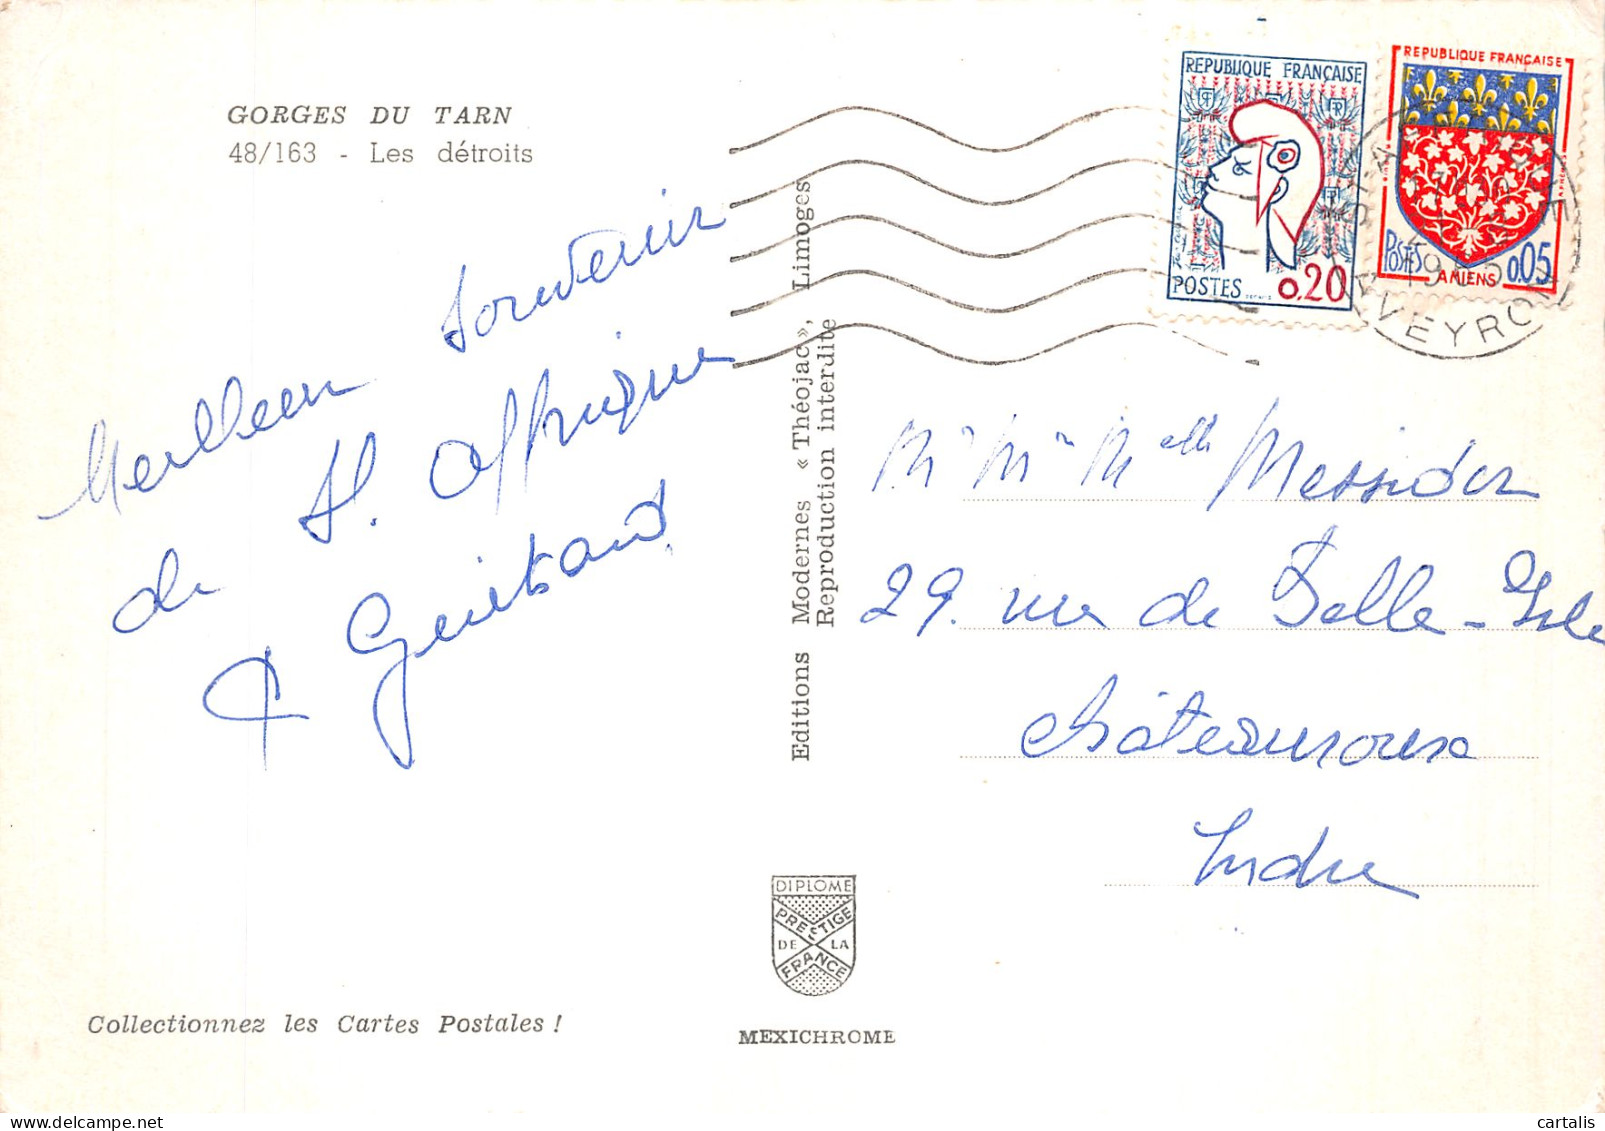 GORGES DU TARN
48/163 - Les détroits
Meilleur souvenir
de St. Affrique
Guibaud
Editions Modernes « Théojac », Limoges
Reproduction interdite
REPUBLIQUE FRANÇAISE
POSTES 0.20
REPUBLIQUE FRANÇAISE
POSTES 0.05
AMIENS
1965
AVEYRON
Mr Me Melle Messidor
29. rue de Belle-Isle
Châteauroux
Indre
DIPLOME
PRESTIGE
DE LA
FRANCE
Collectionnez les Cartes Postales !
MEXICHROME
cartalis